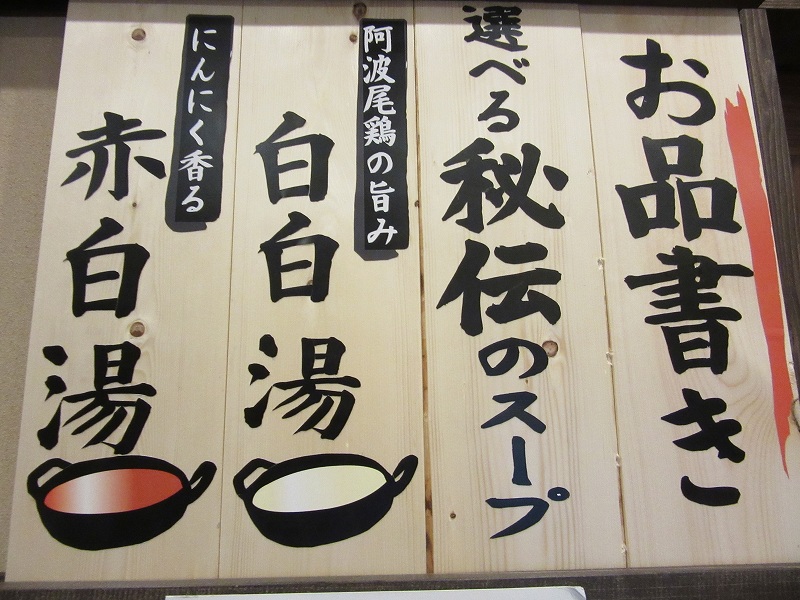 お品書き
選べる秘伝のスープ
阿波尾鶏の旨み
白白湯
にんにく香る
赤白湯